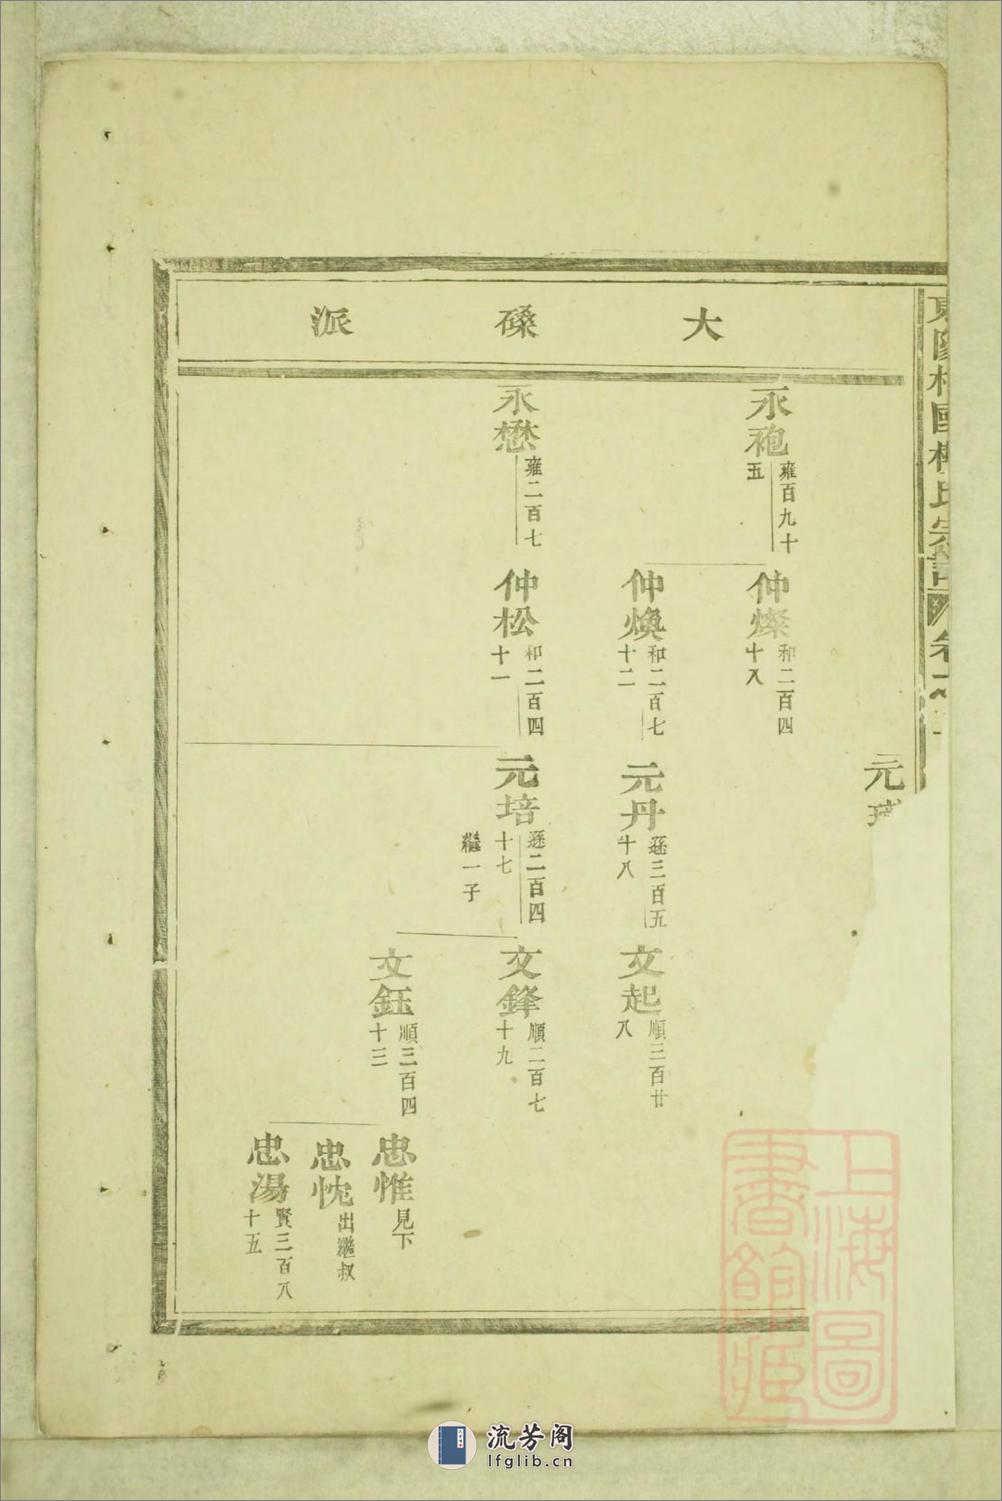 大磉派
元
永袍
雍百九十
五
仲燦
和二百四
十八
仲煥
和二百七
十二
元丹
遜三百五
十八
文起
順三百廿
八
永懋
雍二百七
仲松
和二百四
十一
元培
遜二百四
十七
繼一子
文鋒
順二百七
十九
文鈺
順三百四
十三
忠惟
見下
忠忱
出繼叔
忠湯
賢三百八
十五
上海圖
書館藏
流芳阁
lfglib.cn